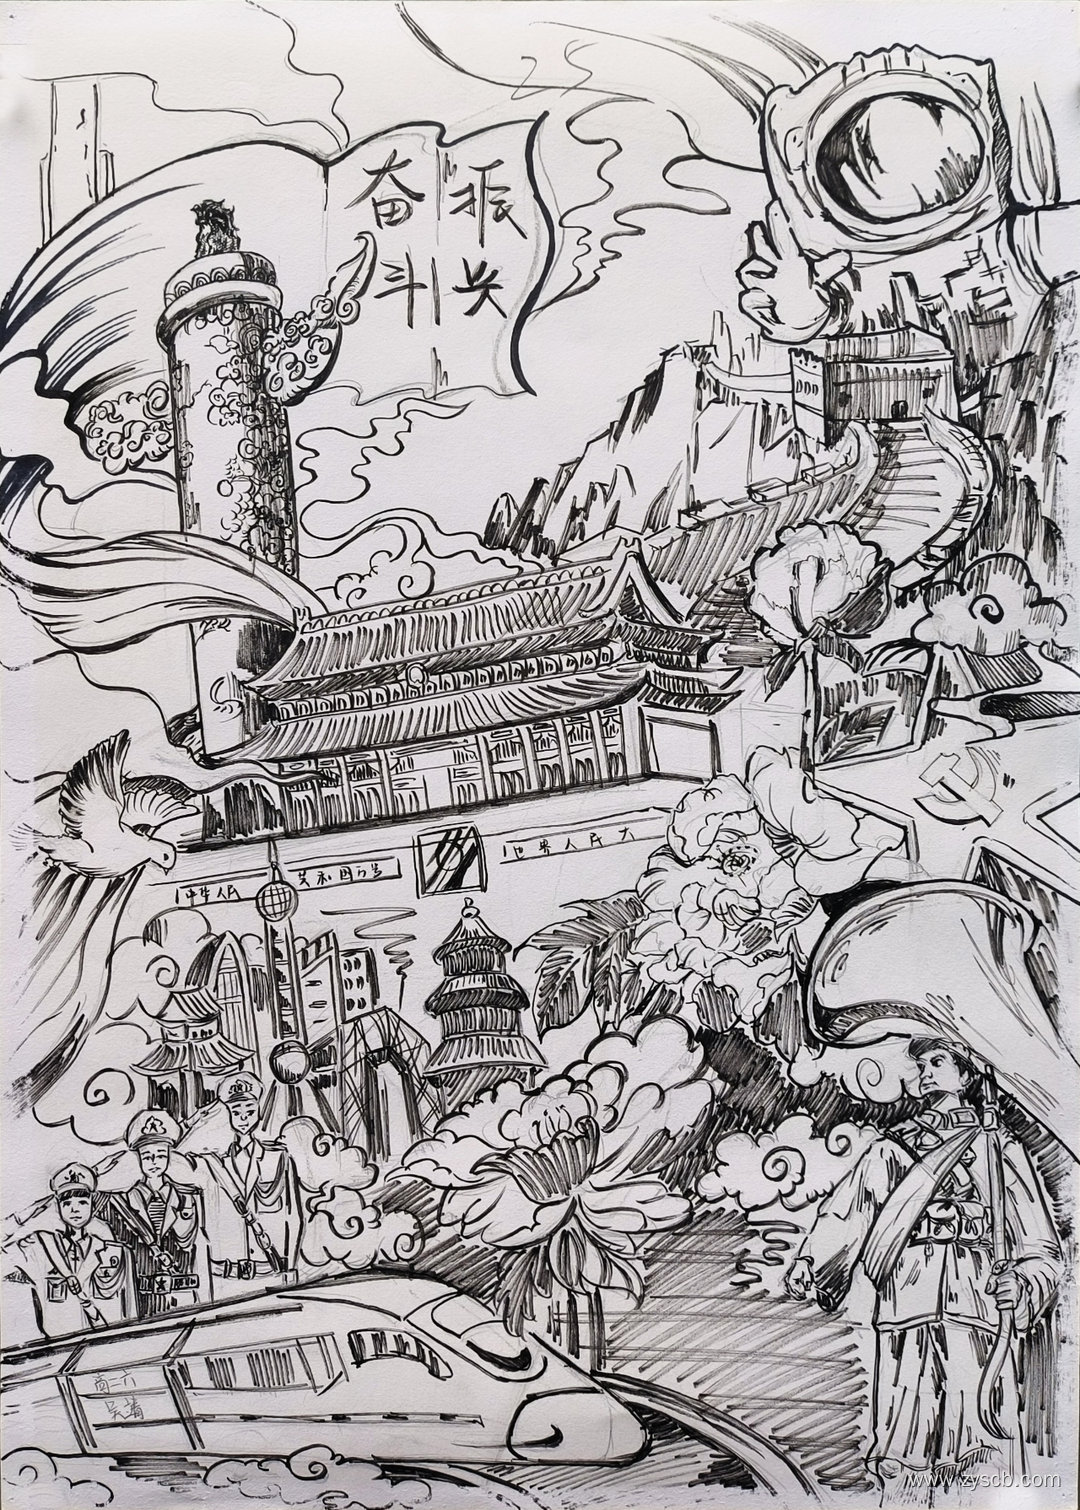 25
振兴
奋斗
中华人民
共和国万岁
世界人民大
高二六
www.zyscb.com